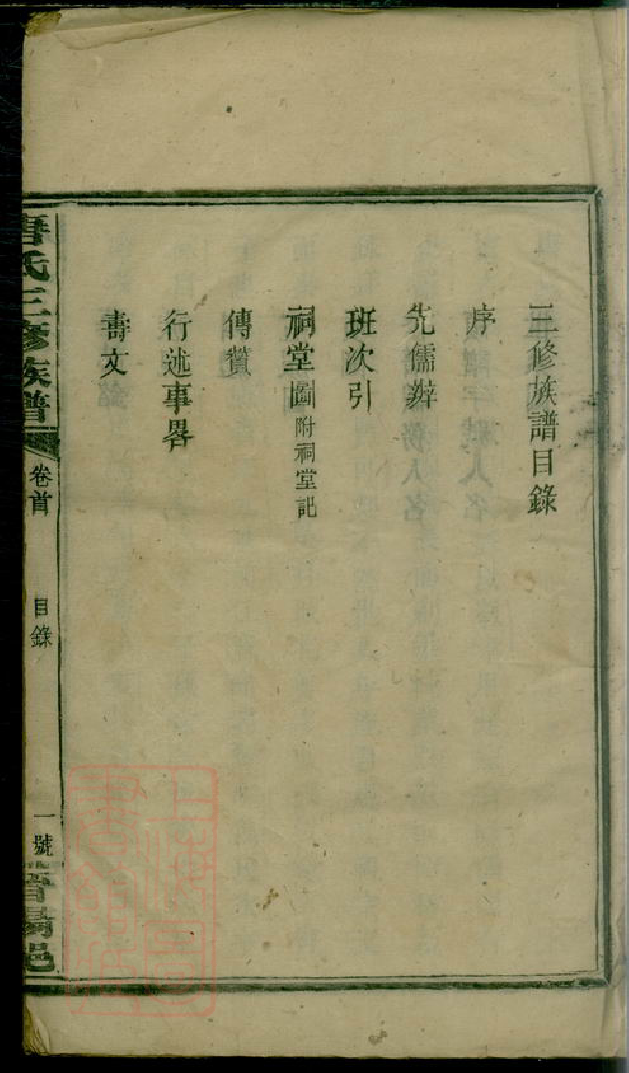 三修族譜目錄
序
先儒辨
班次引
祠堂圖附祠堂記
傳贊
行述事畧
壽文
唐氏三修族譜
卷首
目錄
一號
晉昜邑